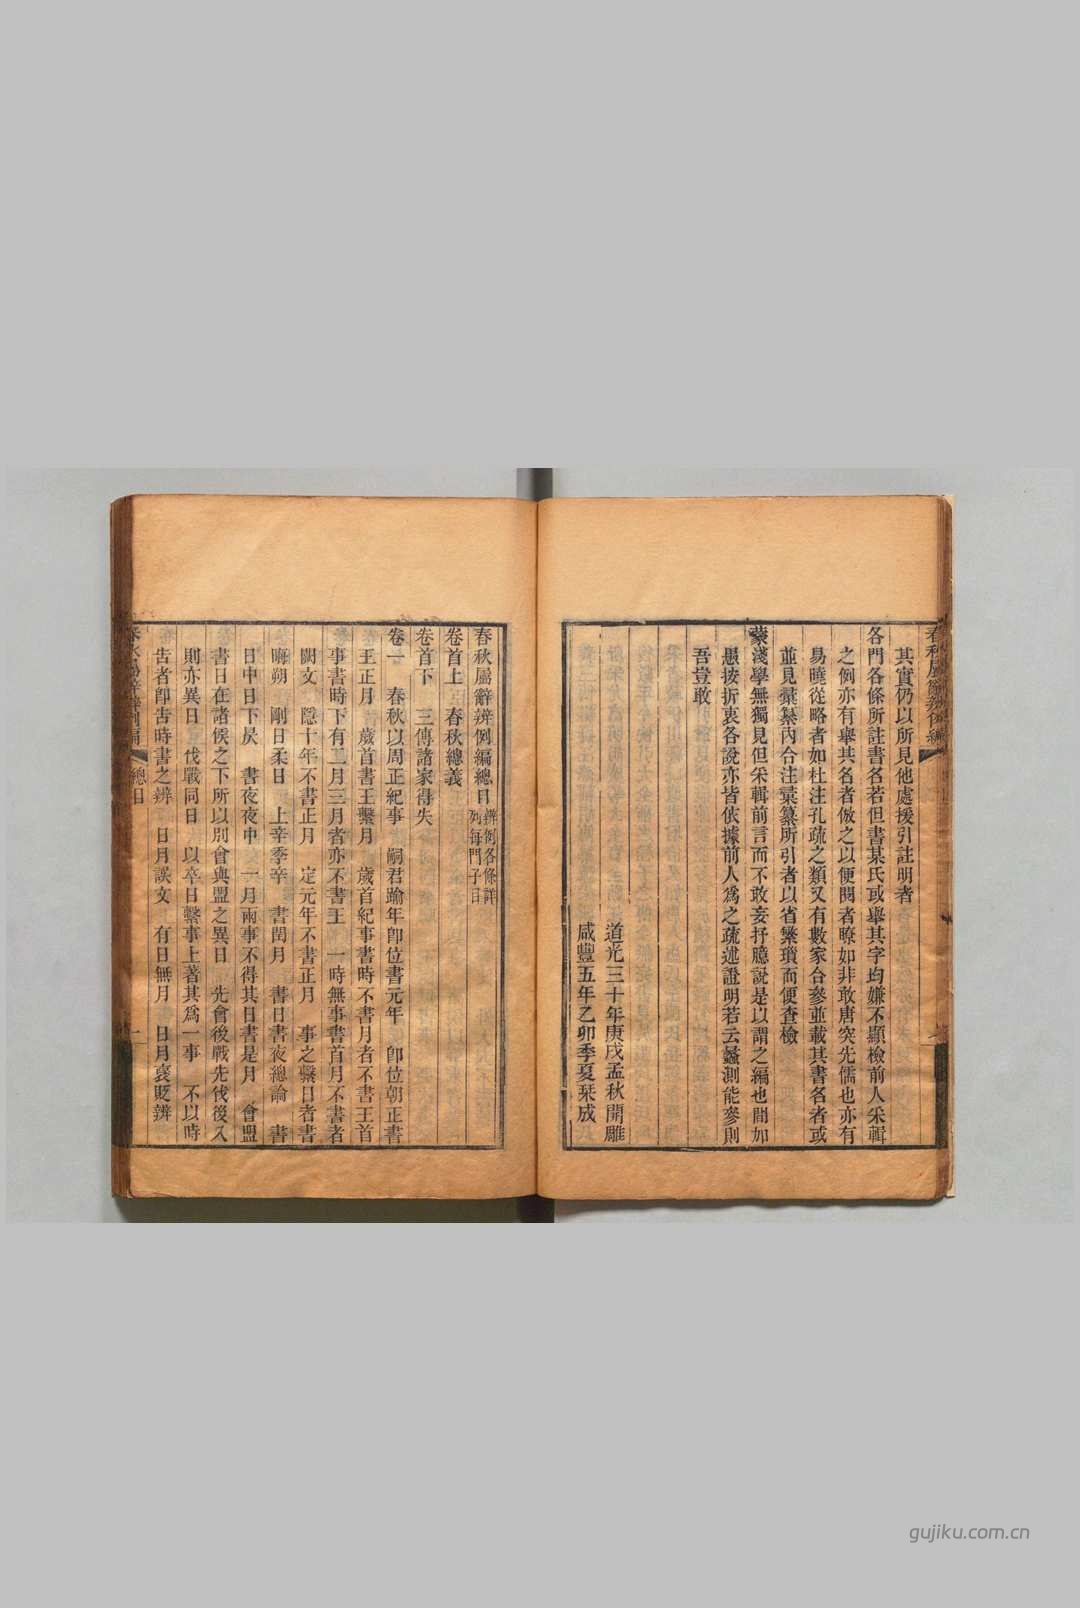 其實仍以所見他處援引註明者
各門各條所註書名若但書某氏或舉其字均嫌不顯檢前人采輯
之例亦有舉其名者倣之以便閱者瞭如非敢唐突先儒也亦有
易曉從略者如杜注孔疏之類又有數家合參並載其書名者或
並見彙纂內合注彙纂所引者以省繁瑣而便查檢
蒙淺學無獨見但采輯前言而不敢妄抒臆說是以謂之編也間加
愚按折衷各說亦皆依據前人爲之疏述證明若云蠡測能參則
吾豈敢
道光三十年庚戌孟秋開雕
咸豐五年乙卯季夏棊成
春秋屬辭辨例編總目 辨例各條詳
列每門子目
卷首上 春秋總義
卷首下 三傳諸家得失
卷一 春秋以周正紀事 嗣君踰年卽位書元年 卽位朝正書
王正月 歲首書王繫月 歲首紀事書時不書月者不書王首
事書時下有二月三月者亦不書王 一時無事書首月不書者
闕文 隱十年不書正月 定元年不書正月 事之繫日者書
晦朔 剛日柔日 上辛季辛 書閏月 書日書夜總論 書
日中日下昃 書夜夜中 一月兩事不得其日書是月 會盟
書日在諸侯之下所以別會與盟之異日 先會後戰先伐後入
則亦異日 伐戰同日 以卒日繫事上著其爲一事 不以時
告者卽告時書之辨 日月誤文 有日無月 日月褒貶辨
春秋屬辭辨例編 總目 一